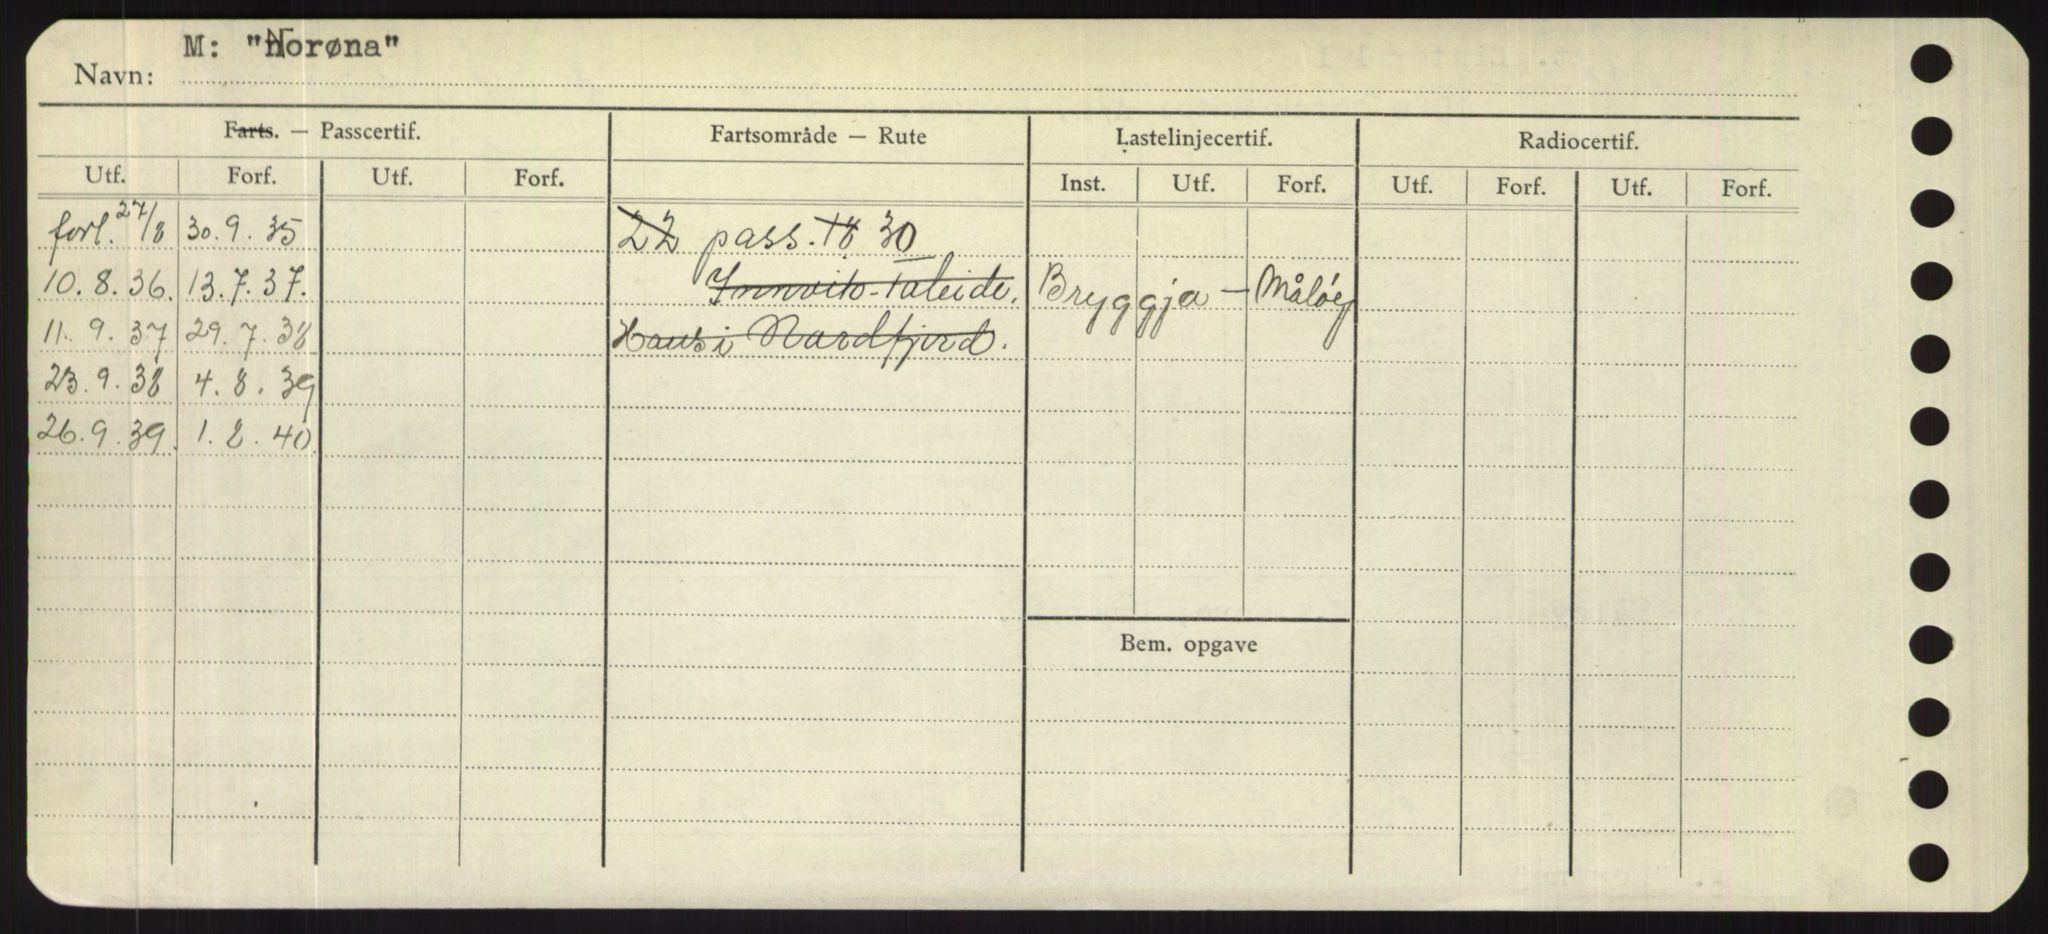 M: "Norøna"
Navn:
Farts. — Passcertif.
Fartsområde — Rute
Lastelinjecertif.
Radiocertif.
Utf. Forf. Utf. Forf. Inst. Utf. Forf. Utf. Forf. Utf. Forf.
forl. 27/8 30.9.35 22 pass. 18 30
10.8.36. 13.7.37. Bryggja — Måløy
11.9.37 29.7.38 Nordfjord.
23.9.38 4.8.39
26.9.39. 1.8.40
Bem. opgave